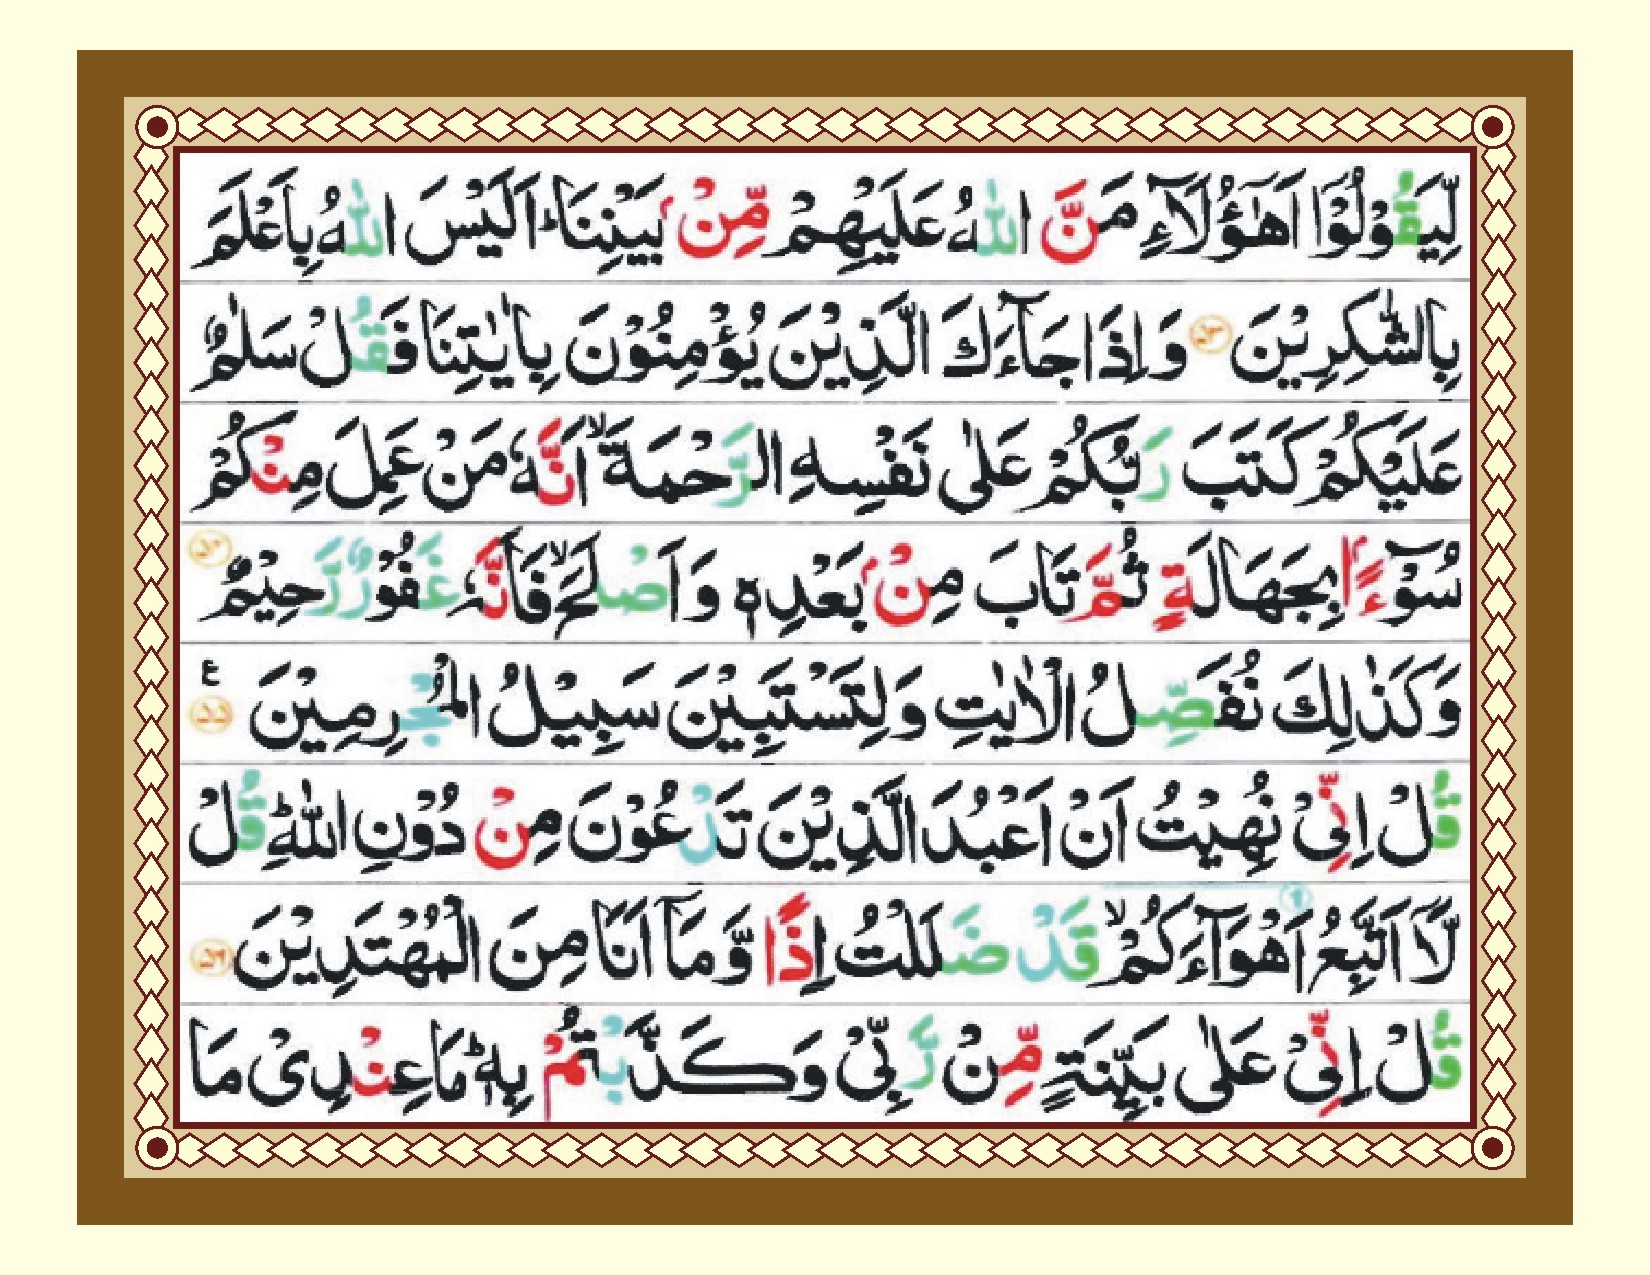 لِّيَقُوْلُوْۤا اَهٰۤؤُلَآءِ مَنَّ اللّٰهُ عَلَيْهِمْ مِّنْۢ بَيْنِنَا ؕ اَلَيْسَ اللّٰهُ بِاَعْلَمَ
بِالشّٰكِرِيْنَ ۵۳ وَاِذَا جَآءَكَ الَّذِيْنَ يُؤْمِنُوْنَ بِاٰيٰتِنَا فَقُلْ سَلٰمٌ
عَلَيْكُمْ كَتَبَ رَبُّكُمْ عَلٰى نَفْسِهِ الرَّحْمَةَ ۙ اَنَّهٗ مَنْ عَمِلَ مِنْكُمْ
سُوْٓءًۢا بِجَهَالَةٍ ثُمَّ تَابَ مِنْۢ بَعْدِهٖ وَاَصْلَحَ ۙ فَاَنَّهٗ غَفُوْرٌ رَّحِيْمٌ ۵۴
وَكَذٰلِكَ نُفَصِّلُ الْاٰيٰتِ وَلِتَسْتَبِيْنَ سَبِيْلُ الْمُجْرِمِيْنَ ۵۵ ع
قُلْ اِنِّىْ نُهِيْتُ اَنْ اَعْبُدَ الَّذِيْنَ تَدْعُوْنَ مِنْ دُوْنِ اللّٰهِ ؕ قُلْ
لَّاۤ اَتَّبِعُ اَهْوَآءَكُمْ ۙ قَدْ ضَلَلْتُ اِذًا وَّمَاۤ اَنَا مِنَ الْمُهْتَدِيْنَ ۵۶
قُلْ اِنِّىْ عَلٰى بَيِّنَةٍ مِّنْ رَّبِّىْ وَكَذَّبْتُمْ بِهٖ ؕ مَا عِنْدِىْ مَا